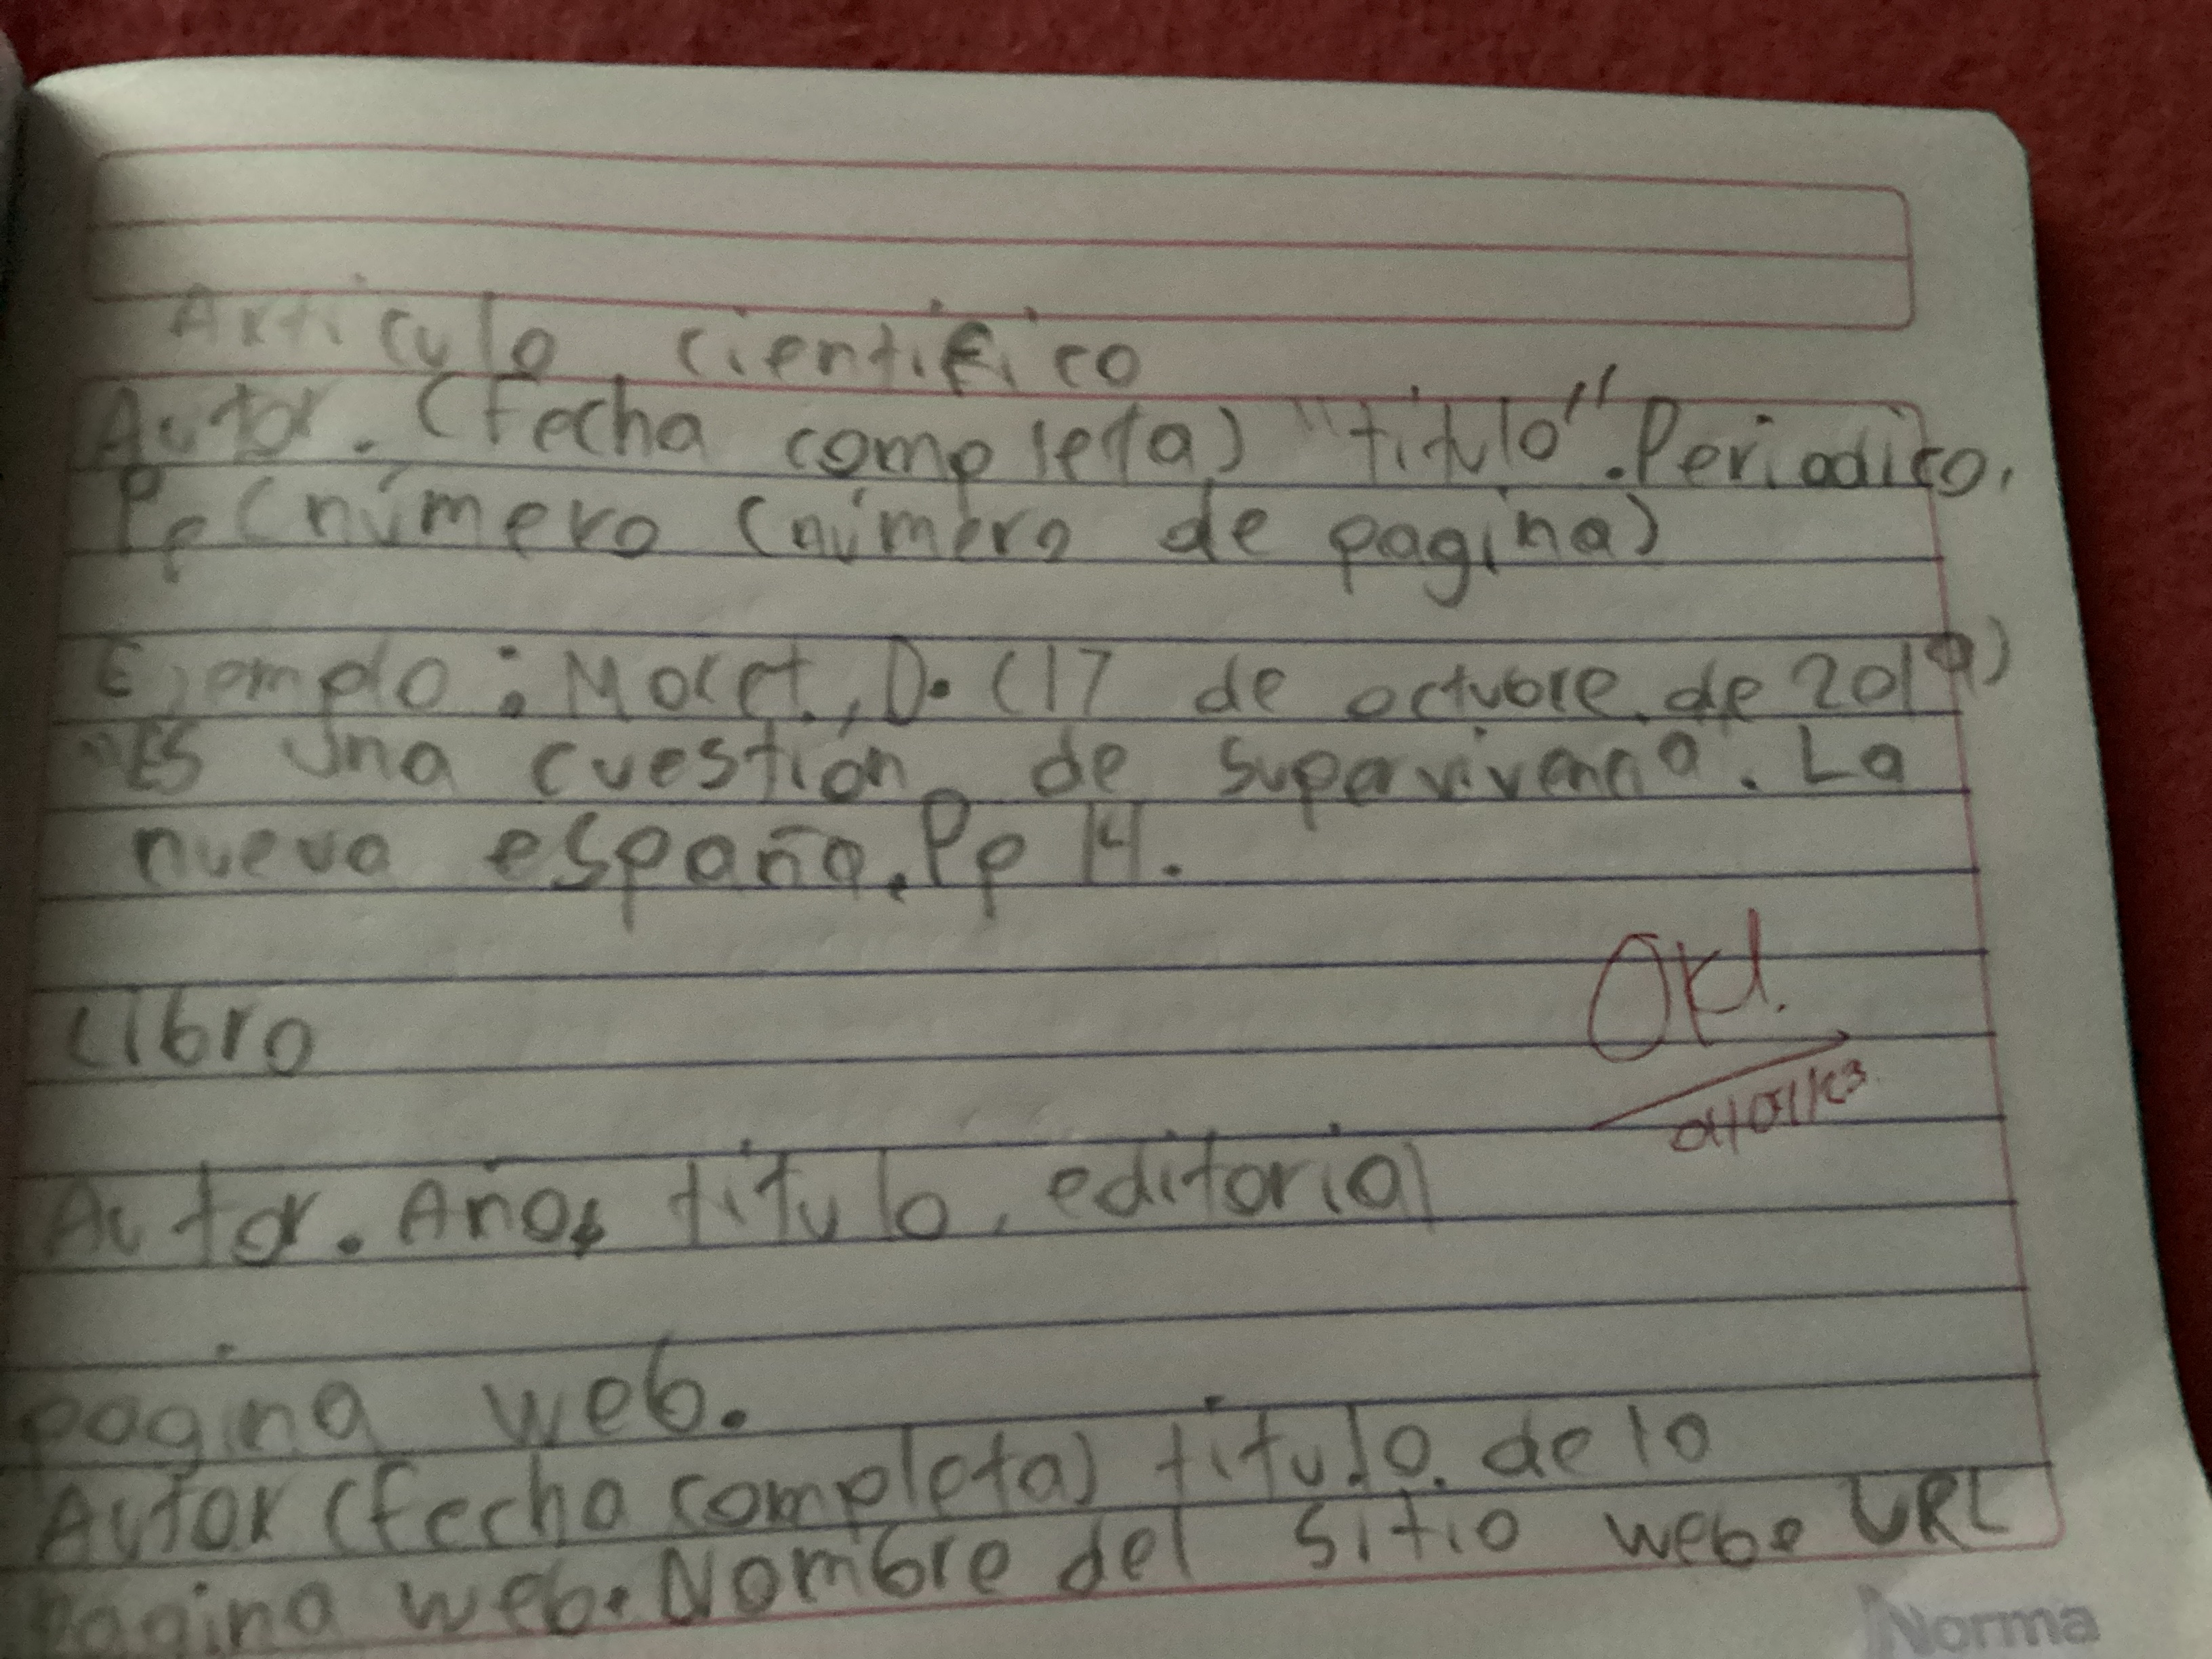 Articulo cientifico
Autor. (Fecha completa) "titulo". Periodico,
Pp (número (número de pagina)
Ejemplo: Moret, D. (17 de octubre de 2019)
"Es una cuestión de supervivencia". La
nueva españa. Pp 14.
Libro
Ok!
Autor. Año, titulo, editorial
pagina web.
Autor (fecha completa) titulo de la
pagina web. Nombre del sitio web. URL
Norma